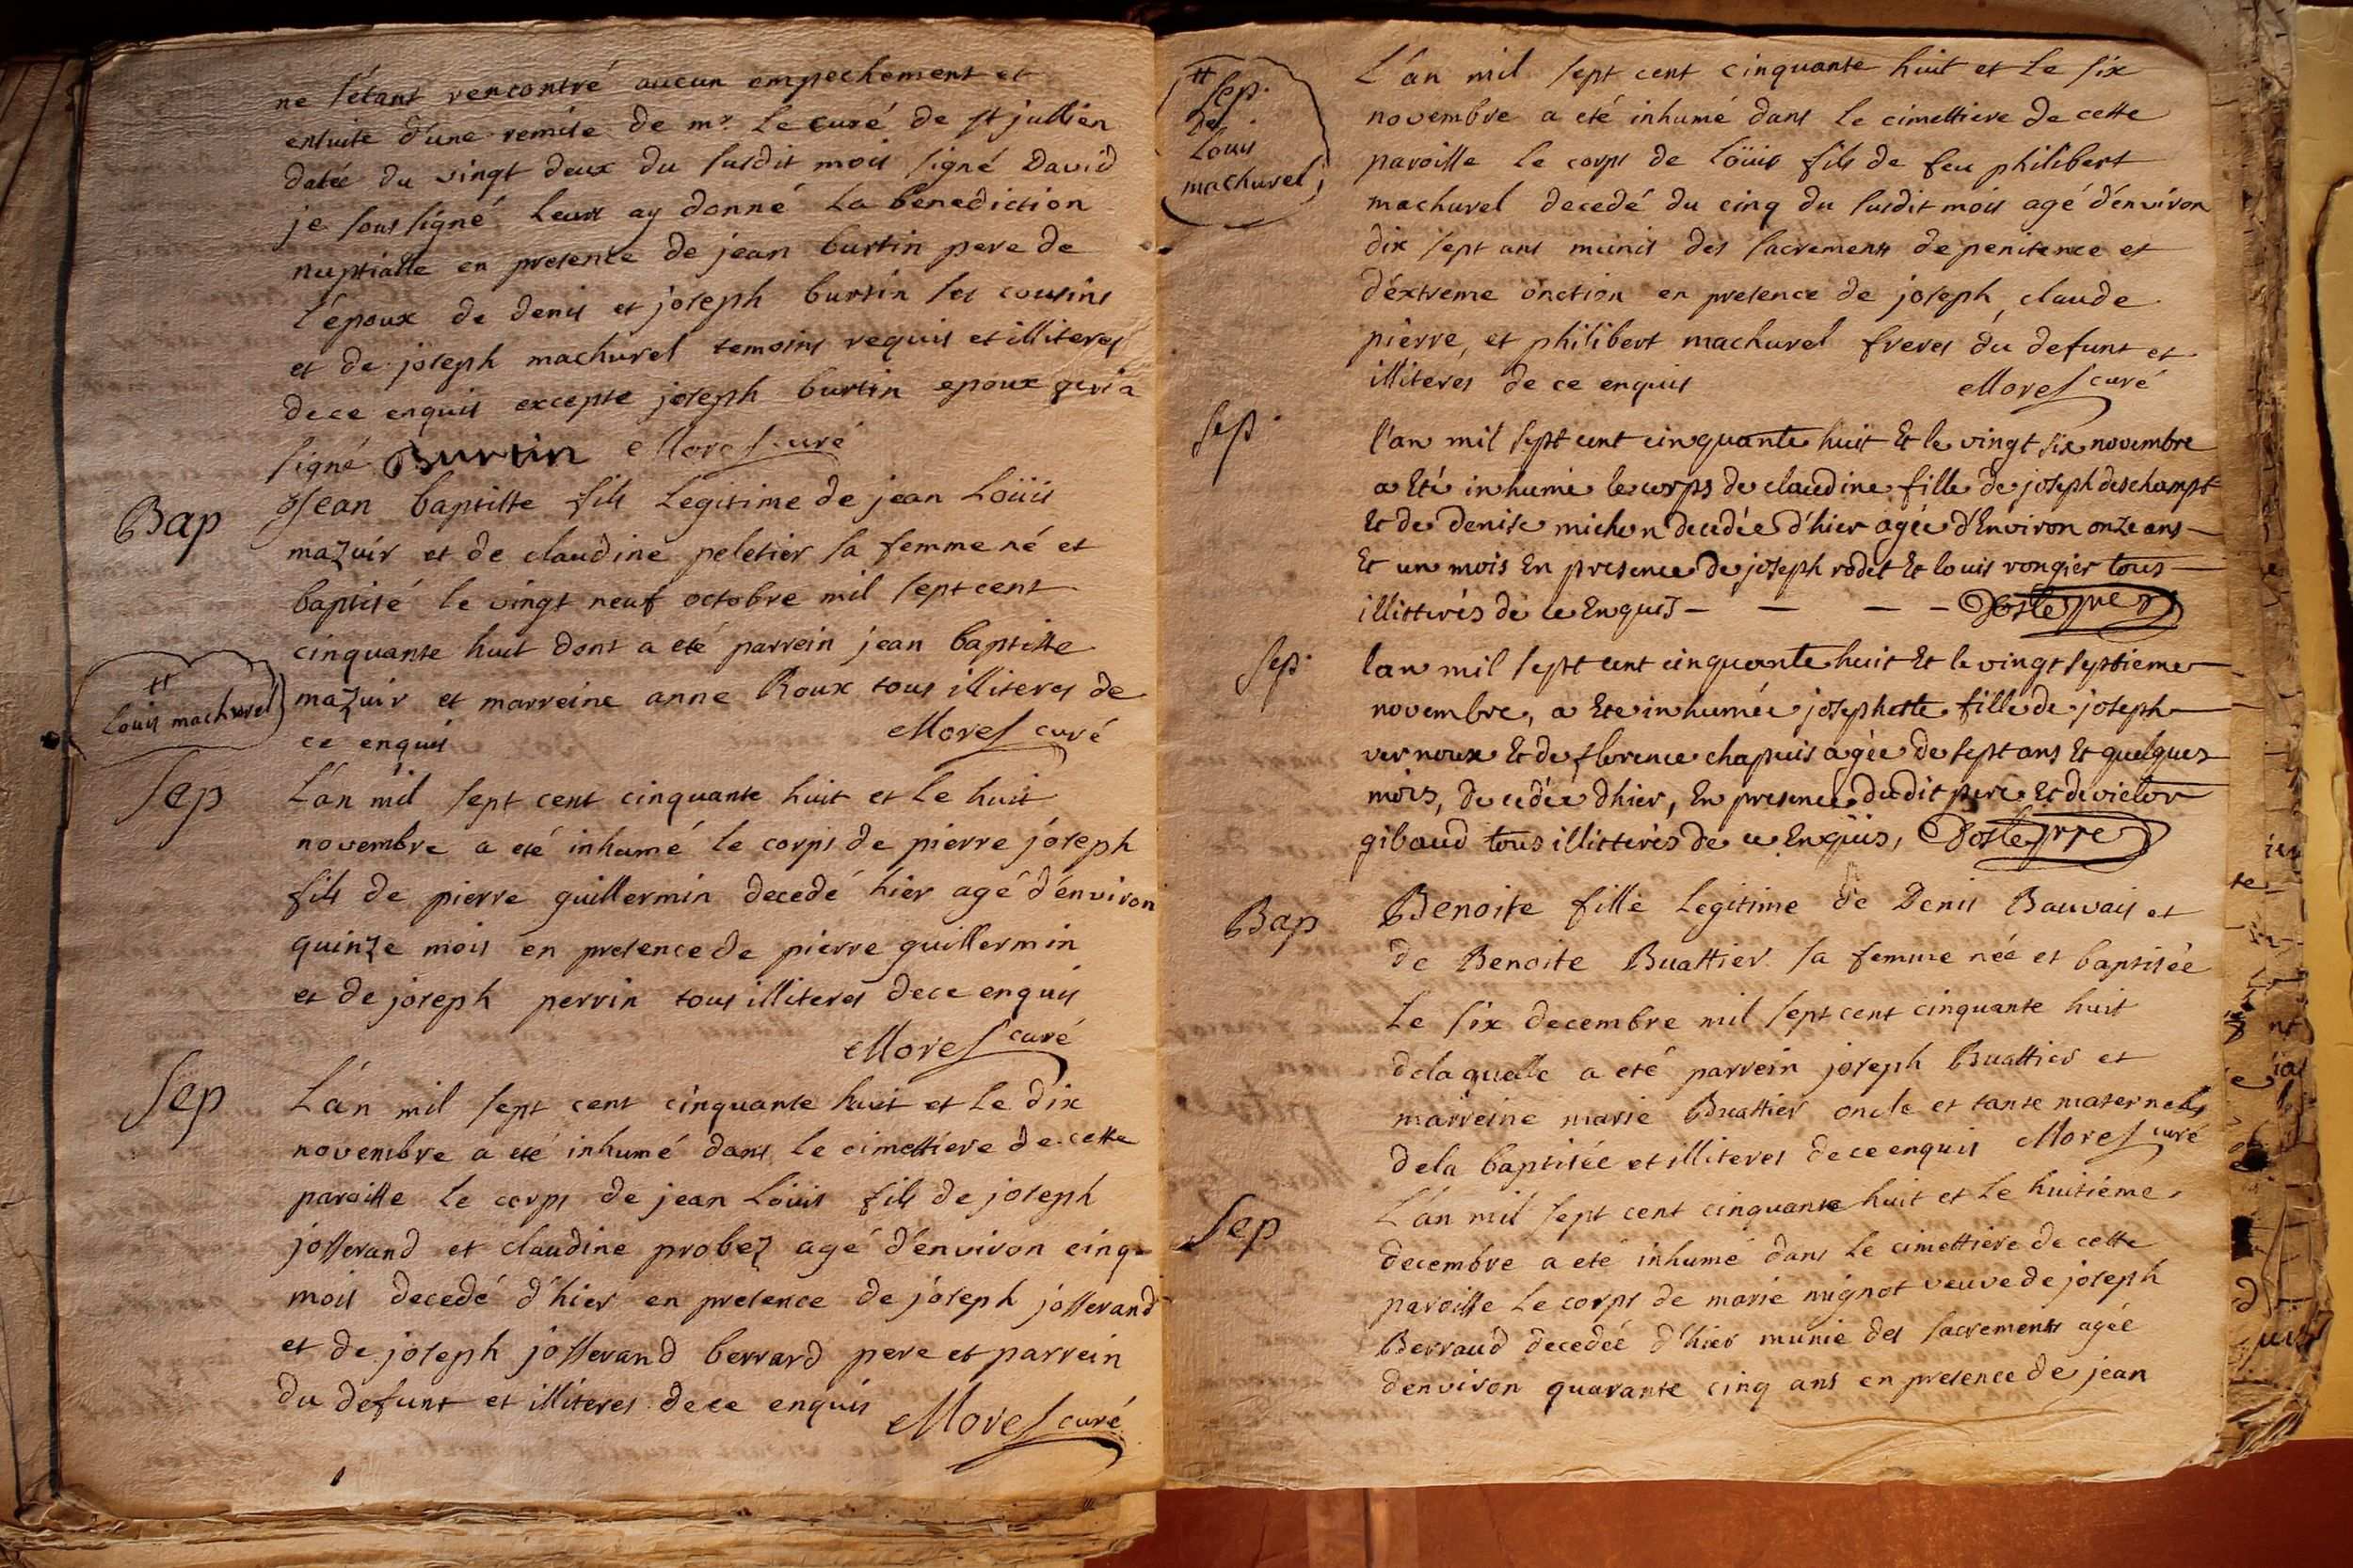 ne s'étant rencontré aucun empechement et
ensuite d'une remise de mr. le curé de st jullien
datée du vingt deux du susdit mois signé David
je soussigné leurs ay donné la benediction
nuptialle en presence de jean burtin pere de
l'époux de denis et joseph burtin ses cousins
et de joseph machurel temoins requis et illiteres
de ce enquis excepte joseph burtin epoux qui a
signé Burtin Mores curé
Bap
Jean baptiste fils legitime de jean Loüis
mazuir et de claudine peletier sa femme né et
baptisé le vingt neuf octobre mil sept cent
cinquante huit dont a eté parrein jean baptiste
mazuir et marreine anne Roux tous illiteres de
ce enquis Mores curé
#
Louis machurel
Sep
L'an mil sept cent cinquante huit et le huit
novembre a eté inhumé le corps de pierre joseph
fils de pierre guillermin decedé hier agé d'environ
quinze mois en presence de pierre guillermin
et de joseph perrin tous illiteres de ce enquis
Mores curé
Sep
L'an mil sept cent cinquante huit et le dix
novembre a eté inhumé dans le cimettiere de cette
paroisse le corps de jean Loüis fils de joseph
josserand et claudine probez agé d'environ cinq
mois decedé d'hier en presence de joseph josserand
et de joseph josserand berrard pere et parrein
du defunt et illiteres de ce enquis Mores curé
#
Sep.
De
Louis
machurel
L'an mil sept cent cinquante huit et le six
novembre a eté inhumé dans le cimettiere de cette
paroisse le corps de Loüis fils de feu philibert
machurel decedé du cinq du susdit mois agé d'environ
dix sept ans munis des sacrements de penitence et
d'éxtreme onction en presence de joseph, claude
pierre, et philibert machurel freres du defunt et
illiteres de ce enquis Mores curé
Sep.
l'an mil sept cent cinquante huit Et le vingt six novembre
a Eté inhumé le corps de claudine fille de joseph deschamps
Et de denise michon decedée d'hier agée d'Environ onze ans
Et un mois En presence de joseph rodet Et louis rongier tous
illitterés de ce Enquis
Sep.
lan mil sept cent cinquante huit Et le vingt septieme
novembre, a Ete inhumée josephette fille de joseph
vernoux Et de florence chapuis agée de sept ans Et quelques
mois, decedée dhier, En presence dudit pere Et de victor
gibaud tous illitterés de ce Enquis,
Bap
Benoite fille legitime de Denis Bauvais et
de Benoite Buattier sa femme née et baptisée
Le six decembre mil sept cent cinquante huit
de laquelle a eté parrein joseph Buattier et
marreine marie Buattier oncle et tante maternels
de la baptisée et illiteres de ce enquis Mores curé
Sep
L'an mil sept cent cinquante huit et le huitieme
decembre a eté inhumé dans le cimettiere de cette
paroisse le corps de marie mignot veuve de joseph
Berraud decedée d'hier munie des sacrements agée
denviron quarante cinq ans en presence de jean